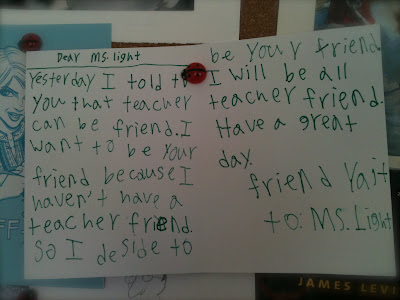 Dear Ms. light
Yesterday I told to
you that teacher
can be friend. I
want to be your
friend because I
haven't have a
teacher friend.
So I deside to
be your friend
I will be all
teacher friend.
Have a great
day.
friend Yait
to: Ms. Light
JAMES LEVI